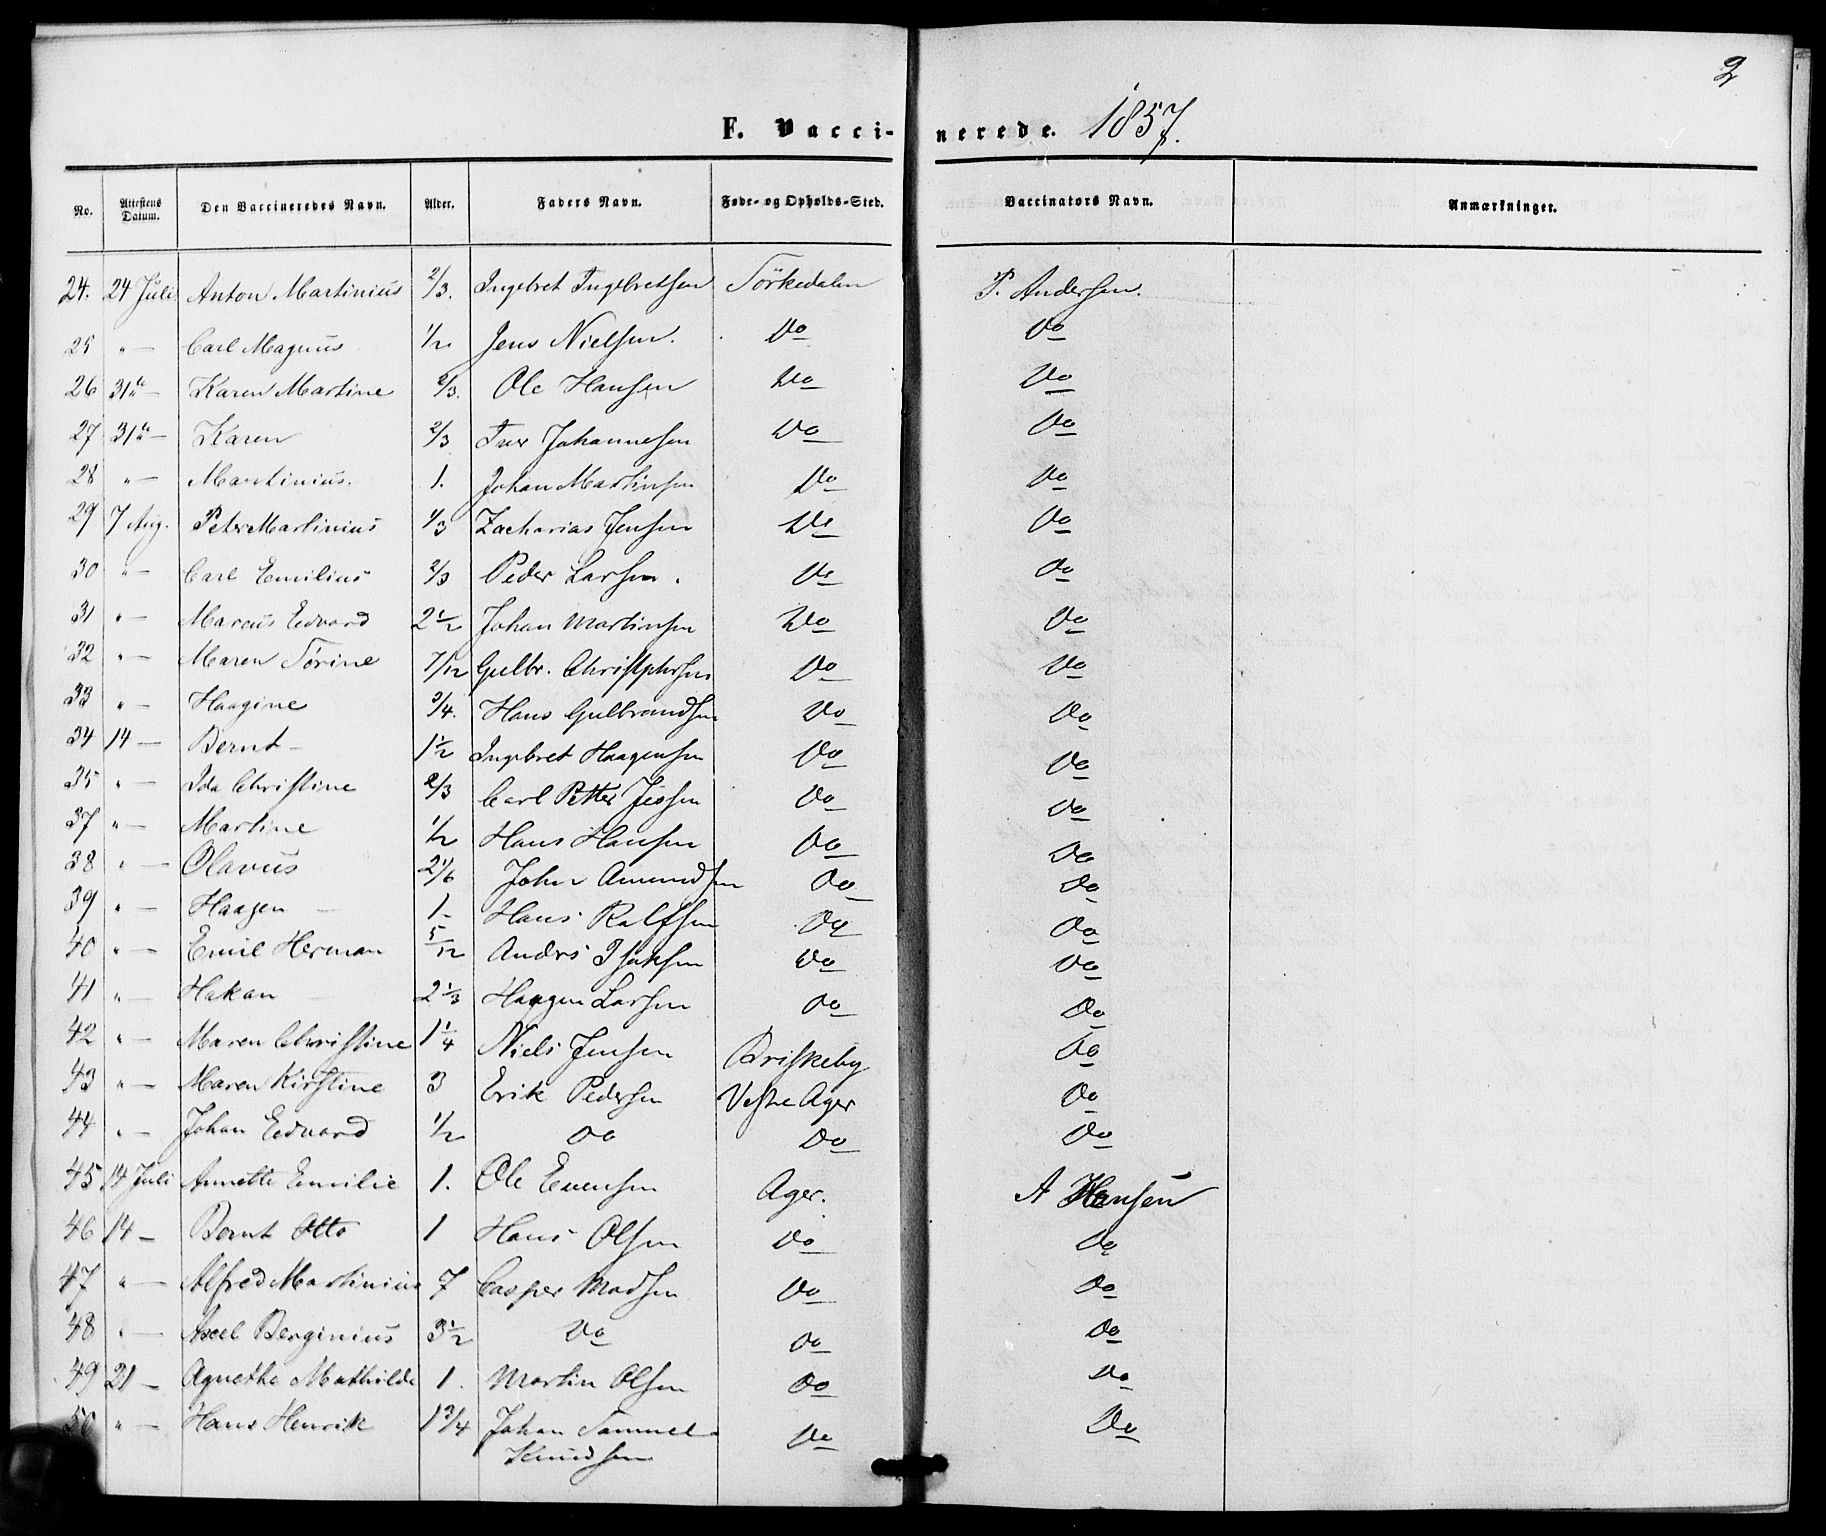 2
F. Vaccinerede. 1857.
No. Attestens Datum. Den Vaccineredes Navn. Alder. Faders Navn. Føde- og Opholds-Sted. Vaccinators Navn. Anmærkninger.
24. 24 Juli Anton Martinius 2/3. Ingebret Ingebretsen Sørkedalen P. Andersen.
25 " — Carl Magnus 1/2. Jens Nielsen. Do Do
26 31te — Karen Martine 2/3. Ole Hansen Do Do
27 31te — Karen 2/3 Iver Johannesen Do Do
28 " — Martinius. 1. Johan Martinsen Do Do
29 7 Aug. Peter Martinius 1/3 Zacharias Jensen Do Do
30 " — Carl Emilius 2/3 Peder Larsen. Do Do
31 " — Marcus Edvard 2 1/2 Johan Martinsen Do Do
32 " — Maren Tørine 7/12 Gulbr. Christphersen Do Do
33 " — Haagine 3/4. Hans Gulbrandsen Do Do
34 14 — Bernt — 1 1/2 Ingebret Haagensen Do Do
35 " — Ida Christine 2/3 Carl Petter Jessen Do Do
37 " — Martine 1/2 Hans Hansen Do Do
38 " — Olavus 2 1/6 John Amundsen Do Do
39 " — Haagen — 1 — Hans Ralfsen Do Do
40 " — Emil Herman 5/12 Andrs Isaksen Do Do
41 " — Hakan — 2 1/3 Haagen Larsen Do Do
42 " — Maren Christine 1 1/4 Niels Jensen Briskeby Do
43 " — Maren Kirstine 3 Erik Pedersen Vestre Ager Do
44 " — Johan Edvard 1/2 Do Do Do
45 14 Juli Annette Emilie 1. Ole Evensen Ager. A Hansen
46 14 — Bernt Otto 1 Hans Olsen Do Do
47 " — Alfred Martinius 7 Casper Madsen Do Do
48 " — Axel Berginius 3 1/2 Do Do Do
49 21 — Agnethe Mathilde 1. Martin Olsen Do Do
50 " — Hans Henrik 1 3/4 Johan Samuel Do Do
Knudsen